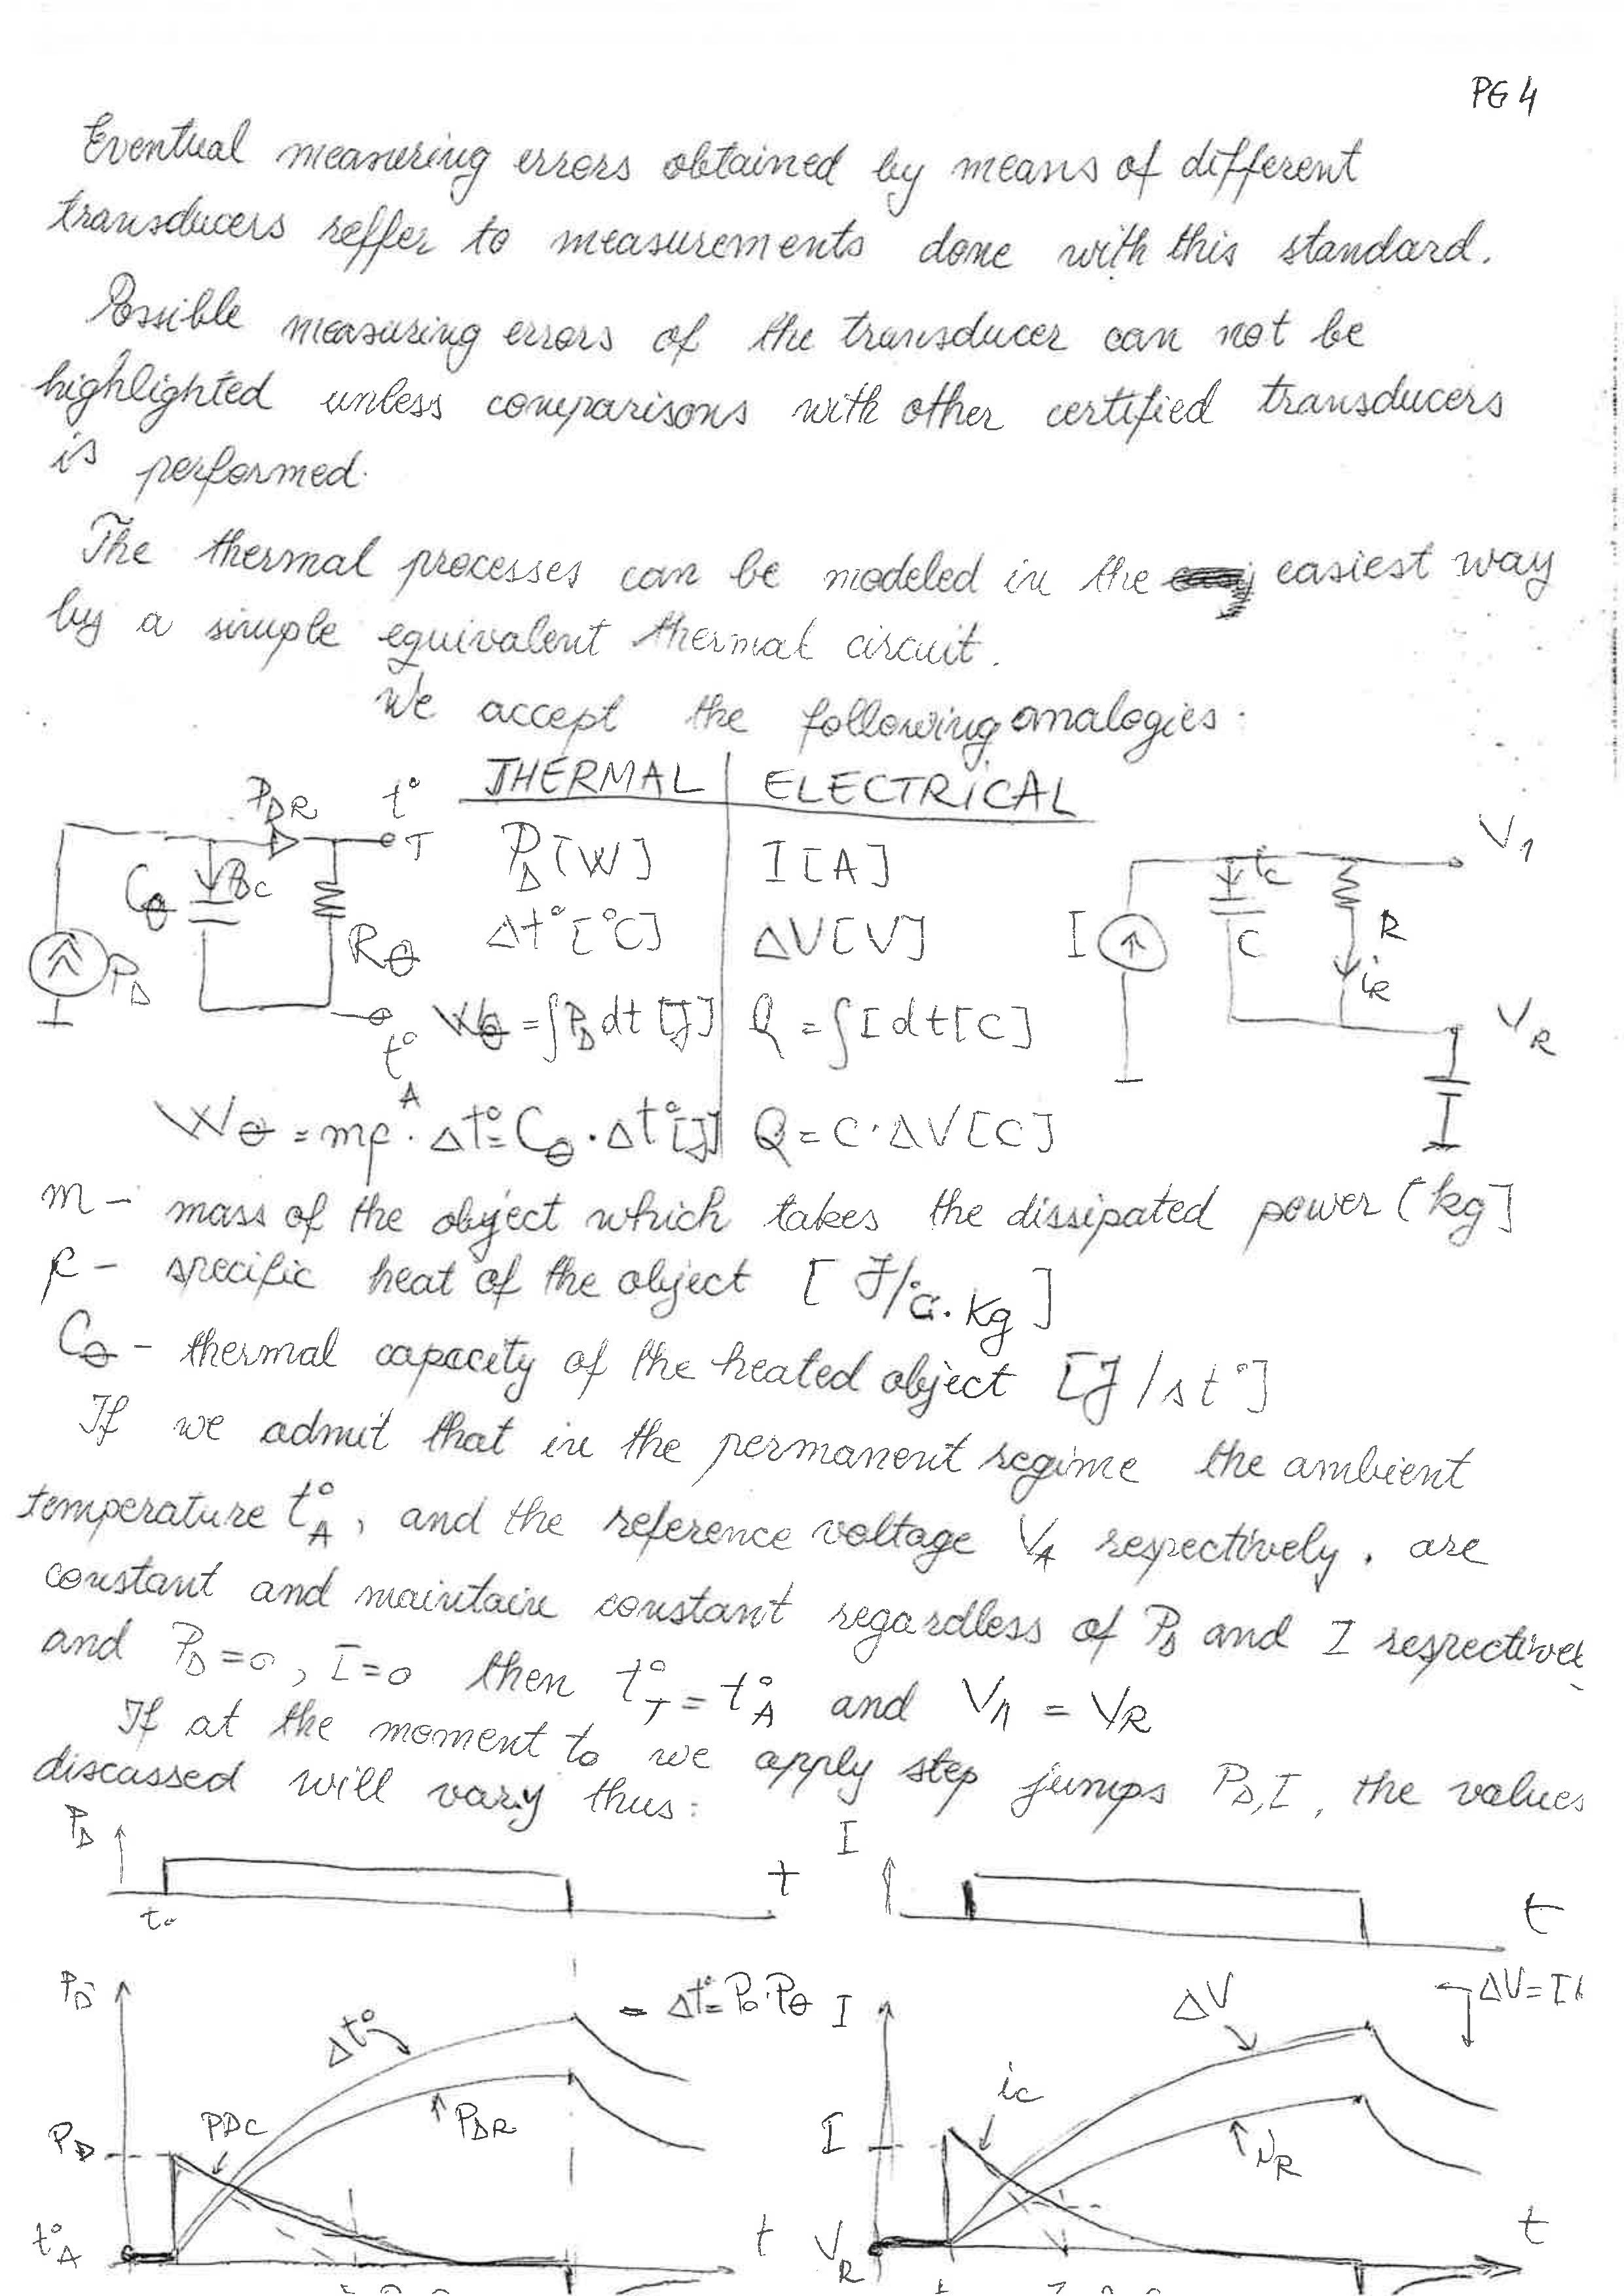 PG 4
Eventual measuring errors obtained by means of different
transducers reffer to measurements done with this standard.
Possible measuring errors of the transducer can not be
highlighted unless comparisons with other certified transducers
is performed.
The thermal processes can be modeled in the easiest way
by a simple equivalent thermal circuit.
We accept the following analogies:
THERMAL | ELECTRICAL
P_DR t° T
C_θ R_θ P_D t°_A
P_D [W] I [A]
Δt° [°C] ΔV [V]
W_θ = ∫P_D dt [J] Q = ∫I dt [C]
W_θ = mρ · Δt° = C_θ · Δt° [J] Q = C · ΔV [C]
V_1 i_c R I C i_R V_R
m – mass of the object which takes the dissipated power [kg]
ρ – specific heat of the object [J/°C·kg]
C_θ – thermal capacity of the heated object [J/st°]
If we admit that in the permanent regime the ambient
temperature t°_A, and the reference voltage V_A respectively, are
constant and maintain constant regardless of P_D and I respectivel
and P_D = 0, I = 0 then t°_T = t°_A and V_1 = V_R
If at the moment to we apply step jumps P_D, I, the values
discassed will vary thus:
P_D t I t
to
P_D Δt° Δt° = P_D · P_θ I ΔV ΔV = I
P_D PDC P_DR I ic
t°_A t V_R t